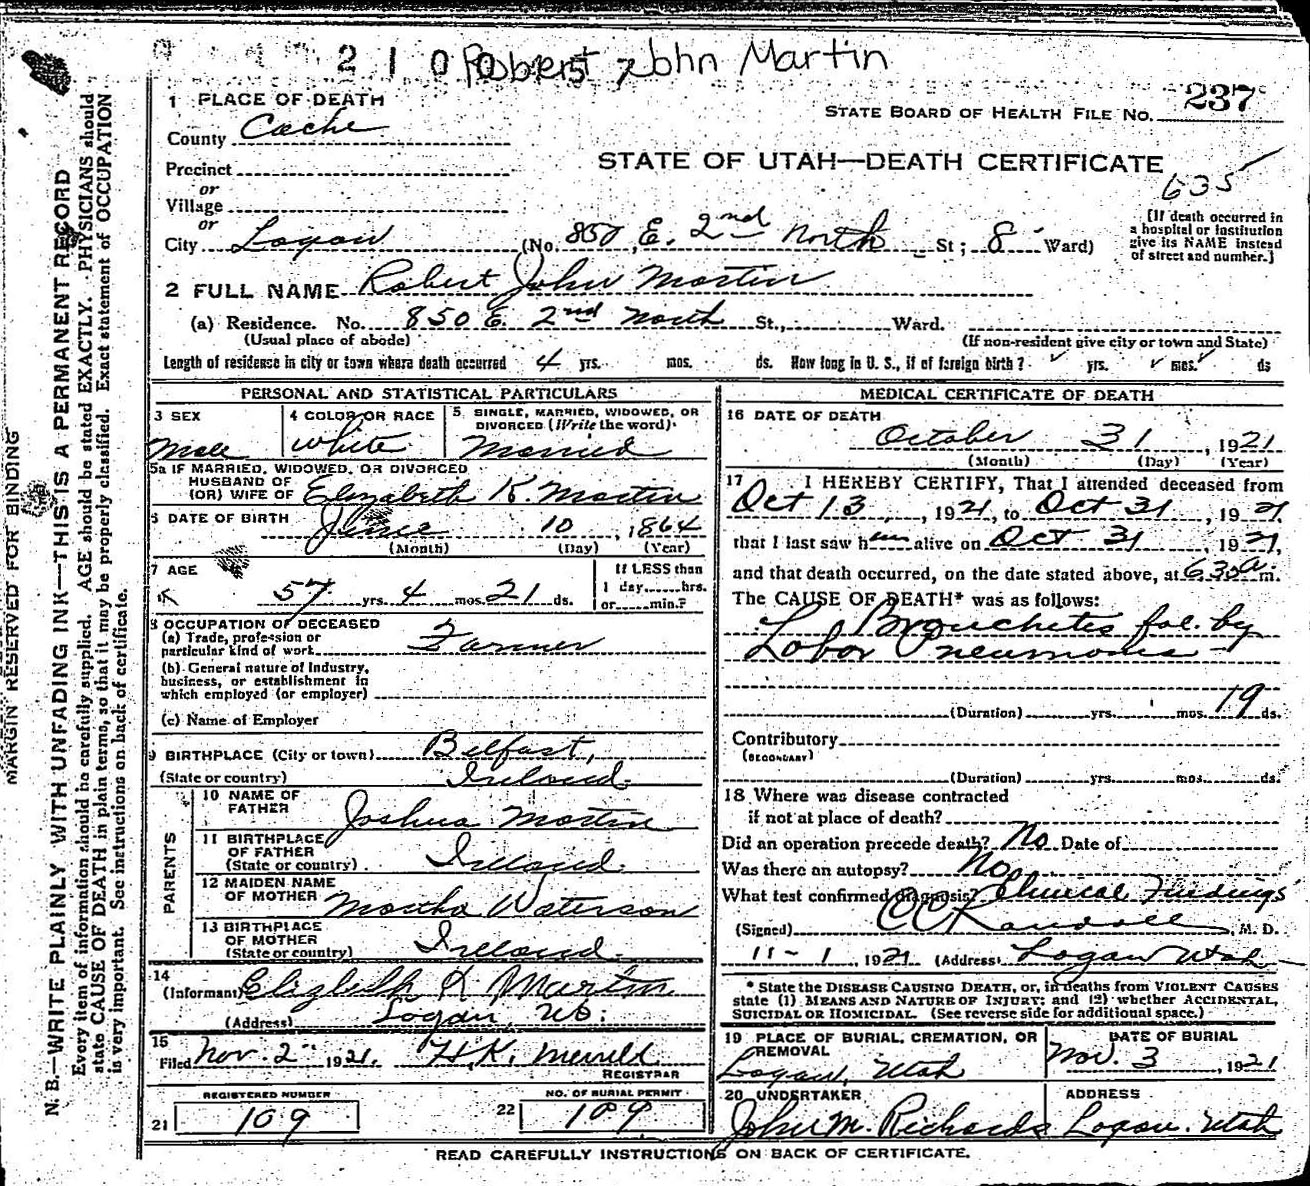 2 1 0 0 5 7
Robert John Martin
237
1 PLACE OF DEATH
STATE BOARD OF HEALTH FILE No.
County Cache
STATE OF UTAH—DEATH CERTIFICATE
Precinct
635
or
Village
or
City Logan (No. 850, E. 2nd North St; 8 Ward)
[If death occurred in
a hospital or institution
give its NAME instead
of street and number.]
2 FULL NAME Robert John Martin
(a) Residence. No. 850 E. 2nd North St., Ward.
(Usual place of abode) (If non-resident give city or town and State)
Length of residence in city or town where death occurred 4 yrs. mos. ds. How long in U. S., if of foreign birth? yrs. mos. ds
PERSONAL AND STATISTICAL PARTICULARS
3 SEX
Male
4 COLOR OR RACE
White
5. SINGLE, MARRIED, WIDOWED, OR
DIVORCED (Write the word)
Married
5a IF MARRIED, WIDOWED, OR DIVORCED
HUSBAND OF
(OR) WIFE OF Elizabeth K. Martin
6 DATE OF BIRTH June 10, 1864
(Month) (Day) (Year)
7 AGE
57 yrs. 4 mos. 21 ds.
If LESS than
1 day......hrs.
or......min.?
8 OCCUPATION OF DECEASED
(a) Trade, profession or
particular kind of work Farmer
(b) General nature of Industry,
business, or establishment in
which employed (or employer)
(c) Name of Employer
9 BIRTHPLACE (City or town) Belfast,
(State or country) Ireland.
PARENTS
10 NAME OF
FATHER Joshua Martin
11 BIRTHPLACE
OF FATHER
(State or country) Ireland.
12 MAIDEN NAME
OF MOTHER Martha Waterson
13 BIRTHPLACE
OF MOTHER
(State or country) Ireland.
14
(Informant) Elizabeth K Martin
(Address) Logan, Ut.
15
Filed Nov. 2 1921. H.K. Merrill
REGISTRAR
REGISTERED NUMBER
21 109
NO. OF BURIAL PERMIT
22 109
MEDICAL CERTIFICATE OF DEATH
16 DATE OF DEATH
October 31, 1921
(Month) (Day) (Year)
17 I HEREBY CERTIFY, That I attended deceased from
Oct 13, 1921, to Oct 31, 1921
that I last saw him alive on Oct 31, 1921,
and that death occurred, on the date stated above, at 630a m.
The CAUSE OF DEATH* was as follows:
Bronchetes fol. by
Lobar Pneumonia
(Duration) yrs. mos. 19 ds.
Contributory
(SECONDARY)
(Duration) yrs. mos. ds.
18 Where was disease contracted
if not at place of death?
Did an operation precede death? No Date of
Was there an autopsy? No
What test confirmed diagnosis? Clinical Findings
(Signed) C C Randall, M. D.
11-1, 1921 (Address) Logan Utah
* State the DISEASE CAUSING DEATH, or, in deaths from VIOLENT CAUSES
state (1) MEANS AND NATURE OF INJURY; and (2) whether ACCIDENTAL,
SUICIDAL OR HOMICIDAL. (See reverse side for additional space.)
19 PLACE OF BURIAL, CREMATION, OR
REMOVAL
Logan, Utah
DATE OF BURIAL
Nov. 3, 1921
20 UNDERTAKER
John M. Richards
ADDRESS
Logan. Utah
READ CAREFULLY INSTRUCTIONS ON BACK OF CERTIFICATE.
MARGIN RESERVED FOR BINDING
N. B.—WRITE PLAINLY WITH UNFADING INK—THIS IS A PERMANENT RECORD
Every item of information should be carefully supplied. AGE should be stated EXACTLY. PHYSICIANS should
state CAUSE OF DEATH in plain terms, so that it may be properly classified. Exact statement of OCCUPATION
is very important. See instructions on back of certificate.